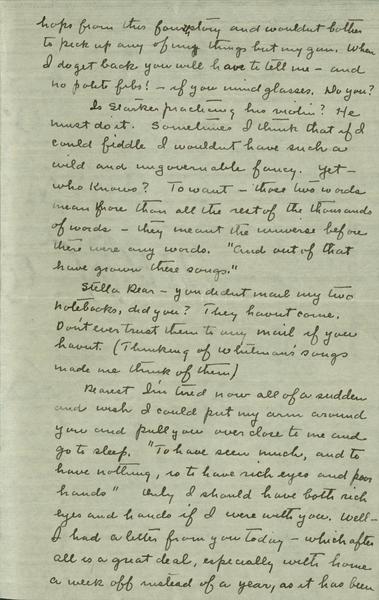 hops from this four story and wouldnt bother
to pick up any of my things but my gun. When
I do get back you will have to tell me – and
no polite fibs! – if you mind glasses. Do you?
Is Starke practicing his violin? He
must do it. Sometimes I think that if I
could fiddle I wouldnt have such a
wild and ungovernable fancy. Yet –
who knows? To want – those two words
mean more than all the rest of the thousands
of words – they meant the universe before
there were any words. "And out of that
have grown these songs."
Stella Dear – you didnt mail my two
notebooks, did you? They havent come.
Dont ever trust them to any mail if you
havent. (Thinking of Whitman's songs
made me think of them)
Dearest I'm tired now all of a sudden
and wish I could put my arm around
you and pull you over close to me and
go to sleep. "To have seen much, and to
have nothing, is to have rich eyes and poor
hands" Only I should have both rich
eyes and hands if I were with you. Well –
I had a letter from you today – which after
all is a great deal, especially with home
a week off instead of a year, as it has been